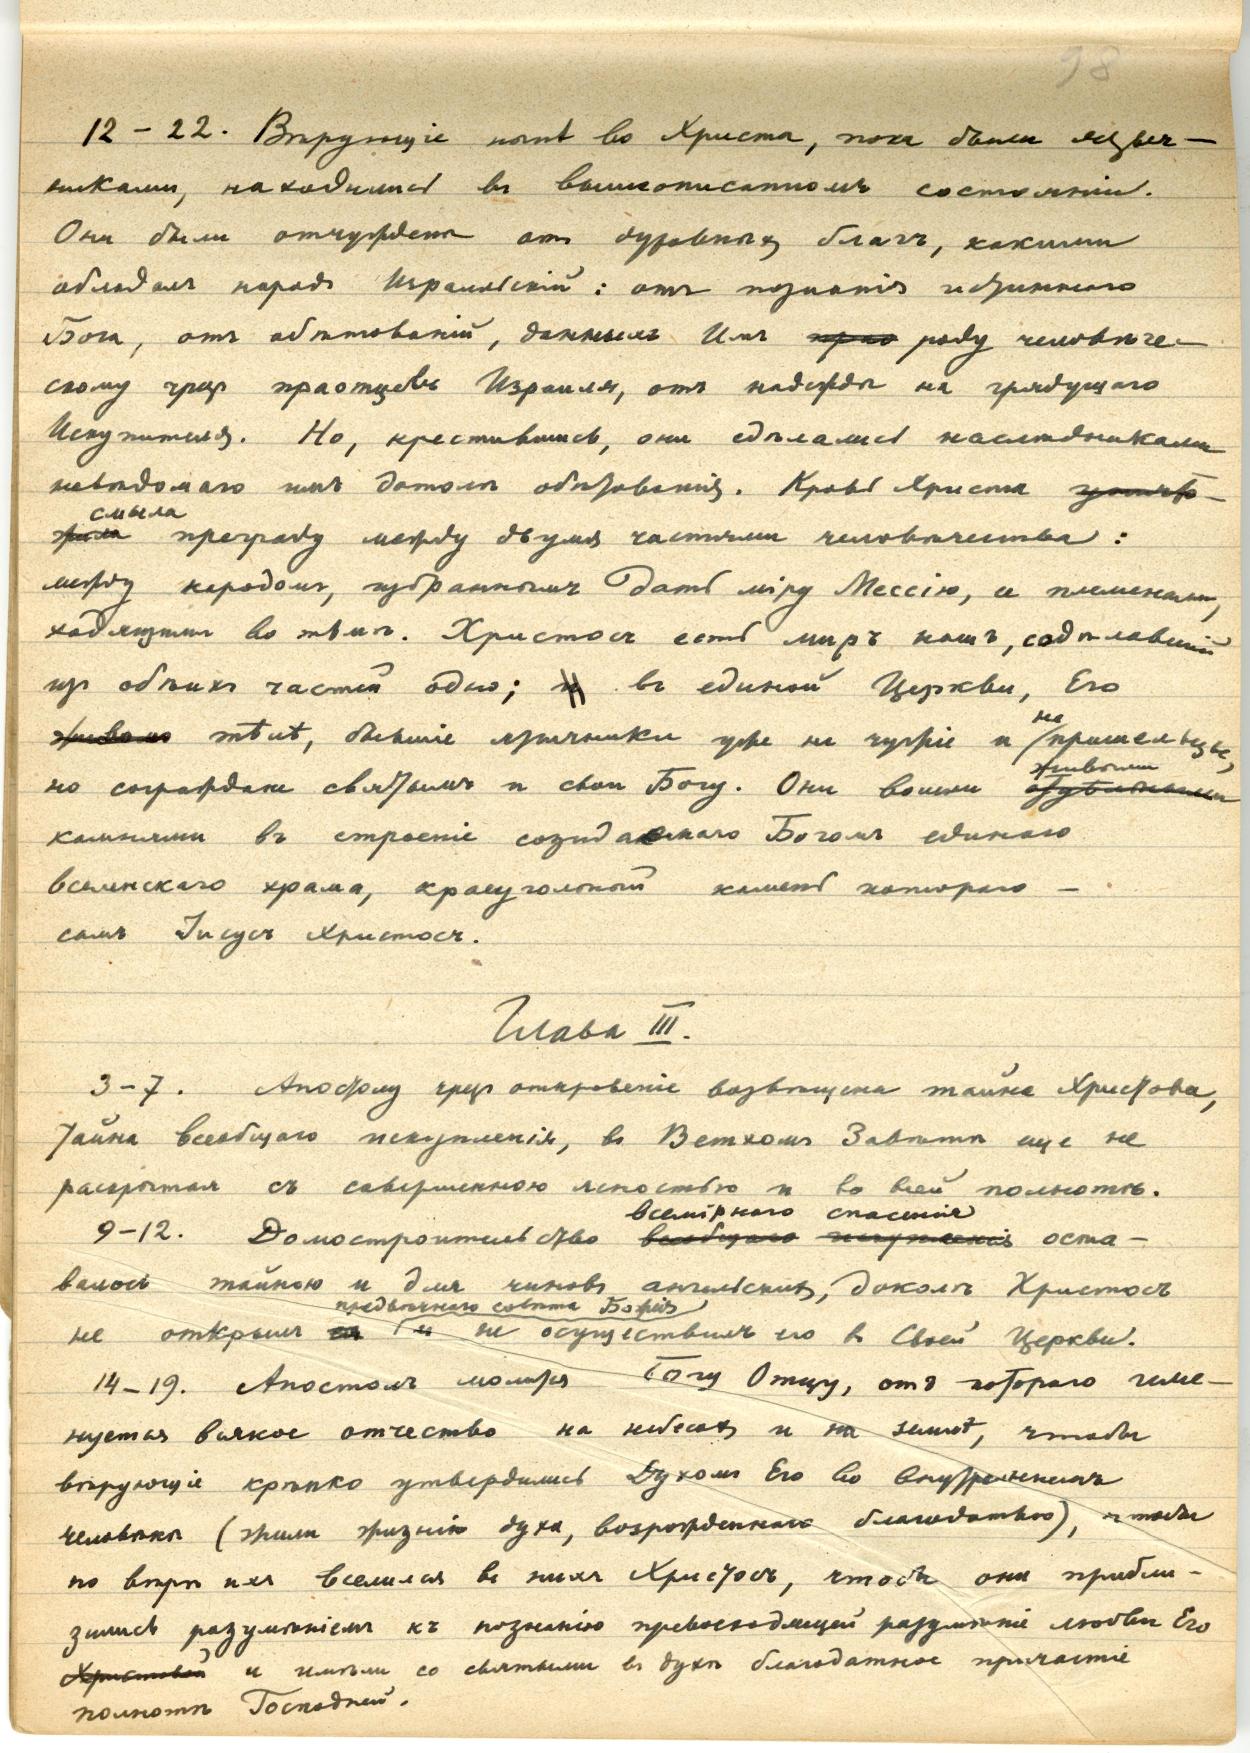 98
12 – 22. Вѣрующіе нынѣ во Христа, пока были языч–
никами, находились въ вышеописанномъ состояніи.
Они были отчуждены отъ духовныхъ благъ, какими
обладалъ народъ Израильскій: отъ познанія истиннаго
Бога, отъ обѣтованій, данныхъ Имъ роду человѣче–
скому чрезъ праотцевъ Израиля, отъ надежды на грядущаго
Искупителя. Но, крестившись, они сдѣлались наслѣдниками
невѣдомаго имъ дотолѣ обѣтованія. Кровь Христа уничто–
смыла
жила преграду между двумя частями человѣчества:
между народомъ, избраннымъ дать міру Мессію, и племенами,
ходящими во тьмѣ. Христосъ есть миръ нашъ, содѣлавшій
изъ обѣихъ частей одно; и въ единой Церкви, Его
не
живомъ тѣлѣ, бывшіе язычники уже не чужіе и пришельцы,
живыми
но сограждане святымъ и свои Богу. Они вошли
камнями въ строеніе созидаемаго Богомъ единаго
вселенскаго храма, краеугольный камень котораго –
самъ Іисусъ Христосъ.
Глава III.
3–7. Апостолу чрезъ откровеніе возвѣщена тайна Христова,
тайна всеобщаго искупленія, въ Ветхомъ Завѣтѣ еще не
раскрытая съ совершенною ясностью и во всей полнотѣ.
всемірнаго спасенія
9–12. Домостроительство всеобщаго искупленія оста–
валось тайною и для чиновъ ангельскихъ, доколѣ Христосъ
предвѣчнаго совѣта Божія
не открылъ и не осуществилъ его въ Своей Церкви.
14–19. Апостолъ молится Богу Отцу, отъ котораго име–
нуется всякое отчество на небесахъ и на землѣ, чтобы
вѣрующіе крѣпко утвердились Духомъ Его во внутреннемъ
человѣкѣ (жили жизнію духа, возрожденнаго благодатью), чтобы
по вѣрѣ ихъ вселился въ нихъ Христосъ, чтобы они прибли–
зились разумѣніемъ къ познанію превосходящей разумѣніе любви Его
Христовой и имѣли со святыми въ духѣ благодатное причастіе
полнотѣ Господней.